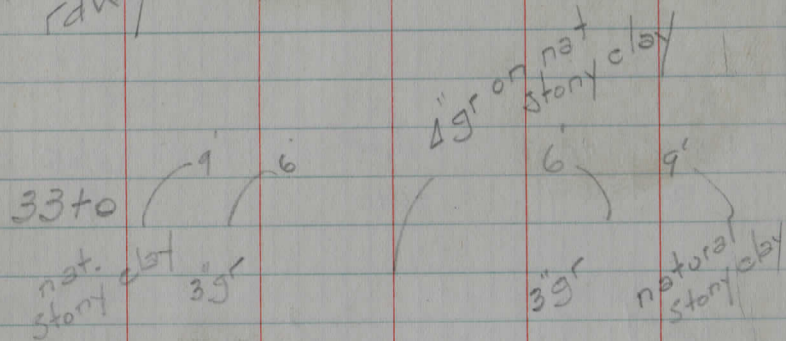 rdwy
4" gr on nat
stony clay
9' 6' 6' 9'
33+0
nat.
stony clay
3" gr
3" gr
natural
stony clay